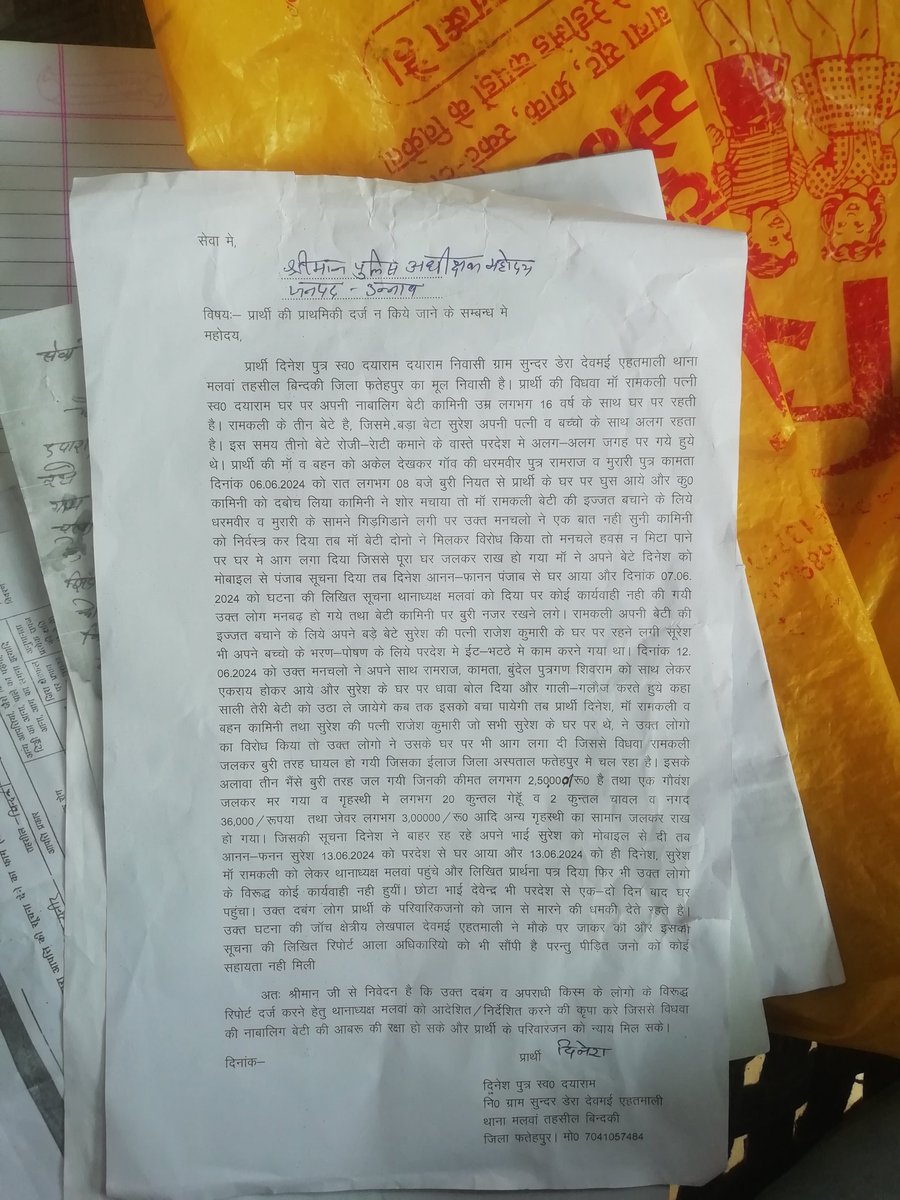 का है।
बाबा सूट, फ्राक, स्कर्ट-
रेडीमेड कपड़ों के विक्रेता
सेवा मे,
श्रीमान पुलिस अधीक्षक महोदय
जनपद - उन्नाव
विषयः– प्रार्थी की प्राथमिकी दर्ज न किये जाने के सम्बन्ध मे
महोदय,
प्रार्थी दिनेश पुत्र स्व0 दयाराम दयाराम निवासी ग्राम सुन्दर डेरा देवमई एहतमाली थाना
मलवां तहसील बिन्दकी जिला फतेहपुर का मूल निवासी है। प्रार्थी की विधवा माँ रामकली पत्नी
स्व0 दयाराम घर पर अपनी नाबालिग बेटी कामिनी उम्र लगभग 16 वर्ष के साथ घर पर रहती
है। रामकली के तीन बेटे है, जिसमे बड़ा बेटा सुरेश अपनी पत्नी व बच्चो के साथ अलग रहता
है। इस समय तीनो बेटे रोजी–राेटी कमाने के वास्ते परदेश मे अलग–अलग जगह पर गये हुये
थे। प्रार्थी की माँ व बहन को अकेल देखकर गाँव की धरमवीर पुत्र रामराज व मुरारी पुत्र कामता
दिनांक 06.06.2024 को रात लगभग 08 बजे बुरी नियत से प्रार्थी के घर पर घुस आये और कु0
कामिनी को दबोच लिया कामिनी ने शोर मचाया तो माँ रामकली बेटी की इज्जत बचाने के लिये
धरमवीर व मुरारी के सामने गिड़गिडाने लगी पर उक्त मनचलो ने एक बात नही सुनी कामिनी
को निर्वस्त्र कर दिया तब माँ बेटी दोनो ने मिलकर विरोध किया तो मनचले हवस न मिटा पाने
पर घर मे आग लगा दिया जिससे पूरा घर जलकर राख हो गया माँ ने अपने बेटे दिनेश को
मोबाइल से पंजाब सूचना दिया तब दिनेश आनन–फानन पंजाब से घर आया और दिनांक 07.06.
2024 को घटना की लिखित सूचना थानाध्यक्ष मलवां को दिया पर कोई कार्यवाही नही की गयी
उक्त लोग मनबढ़ हो गये तथा बेटी कामिनी पर बुरी नजर रखने लगे। रामकली अपनी बेटी की
इज्जत बचाने के लिये अपने बड़े बेटे सुरेश की पत्नी राजेश कुमारी के घर पर रहने लगी सूरेश
भी अपने बच्चो के भरण–पोषण के लिये परदेश मे ईट–भटठे मे काम करने गया था। दिनांक 12.
06.2024 को उक्त मनचलो ने अपने साथ रामराज, कामता, बुंदेल पुत्रगण शिवराम को साथ लेकर
एकराय होकर आये और सुरेश के घर पर धावा बोल दिया और गाली–गलौज करते हुये कहा
साली तेरी बेटी को उठा ले जायेगे कब तक इसको बचा पायेगी तब प्रार्थी दिनेश, माँ रामकली व
बहन कामिनी तथा सुरेश की पत्नी राजेश कुमारी जो सभी सुरेश के घर पर थे, ने उक्त लोगो
का विरोध किया तो उक्त लोगो ने उसके घर पर भी आग लगा दी जिससे विधवा रामकली
जलकर बुरी तरह घायल हो गयी जिसका ईलाज जिला अस्पताल फतेहपुर मे चल रहा है। इसके
अलावा तीन भैंसे बुरी तरह जल गयी जिनकी कीमत लगभग 2,50000/रू0 है तथा एक गौवंश
जलकर मर गया व गृहस्थी मे लगभग 20 कुन्तल गेहूँ व 2 कुन्तल चावल व नगद
36,000/रूपया तथा जेवर लगभग 3,00000/रू0 आदि अन्य गृहस्थी का सामान जलकर राख
हो गया। जिसकी सूचना दिनेश ने बाहर रह रहे अपने भाई सुरेश को मोबाइल से दी तब
आनन–फनन सुरेश 13.06.2024 को परदेश से घर आया और 13.06.2024 को ही दिनेश, सुरेश
माँ रामकली को लेकर थानाध्यक्ष मलवां पहुंचे और लिखित प्रार्थना पत्र दिया फिर भी उक्त लोगो
के विरूद्ध कोई कार्यवाही नही हुयीं। छोटा भाई देवेन्द्र भी परदेश से एक–दो दिन बाद घर
पहुंचा। उक्त दबंग लोग प्रार्थी के परिवारिकजनो को जान से मारने की धमकी देते रहते है।
उक्त घटना की जाँच क्षेत्रीय लेखपाल देवमई एहतमाली ने मौके पर जाकर की और इसकी
सूचना की लिखित रिपोर्ट आला अधिकारियो को भी सौंपी है परन्तु पीडित जनो को कोई
सहायता नही मिली
अतः श्रीमान जी से निवेदन है कि उक्त दबंग व अपराधी किस्म के लोगो के विरूद्ध
रिपोर्ट दर्ज करने हेतु थानाध्यक्ष मलवां को आदेशित/निर्देशित करने की कृपा करे जिससे विधवा
की नाबालिग बेटी की आबरू की रक्षा हो सके और प्रार्थी के परिवारजन को न्याय मिल सके।
दिनांक–
प्रार्थी दिनेश
दिनेश पुत्र स्व0 दयाराम
नि0 ग्राम सुन्दर डेरा देवमई एहतमाली
थाना मलवां तहसील बिन्दकी
जिला फतेहपुर। मो0 7041057484